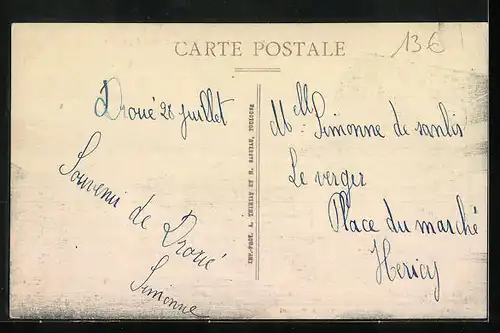 CARTE POSTALE
13€
Droué 28 juillet
Souvenir de
Droué
Simonne
Mell Simonne de senlis
Le verger
Place du marché
Hericy
IMP.-PHOT. A. THIRIAT ET H. BASUYAU, TOULOUSE